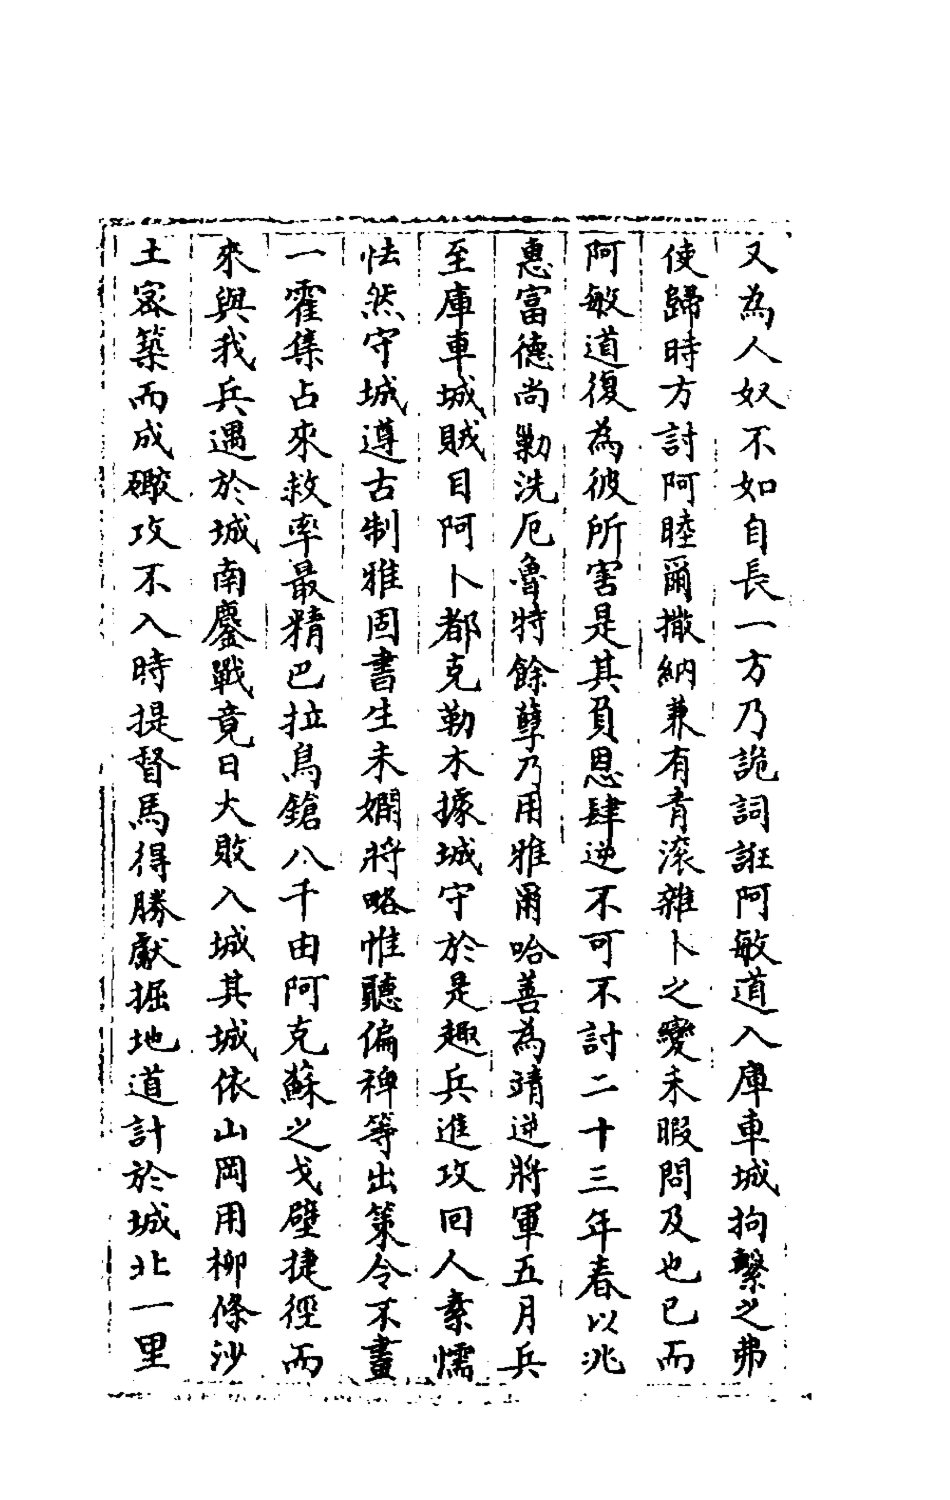 又為人奴不如自長一方乃詭詞誑阿敏道入庫車城拘繫之弗
使歸時方討阿睦爾撒納兼有青滚雜卜之變未暇問及也已而
阿敏道復為彼所害是其負恩肆逆不可不討二十三年春以兆
惠富德尚勦洗厄魯特餘孽乃用雅爾哈善為靖逆將軍五月兵
至庫車城賊目阿卜都克勒木據城守於是趣兵進攻回人素懦
怯然守城遵古制雅固書生未嫺將略惟聽偏裨等出策令不畫
一霍集占來救率最精巴拉鳥鎗八千由阿克蘇之戈壁捷徑而
來與我兵遇於城南鏖戰竟日大敗入城其城依山岡用柳條沙
土宻築而成礮攻不入時提督馬得勝獻掘地道計於城北一里